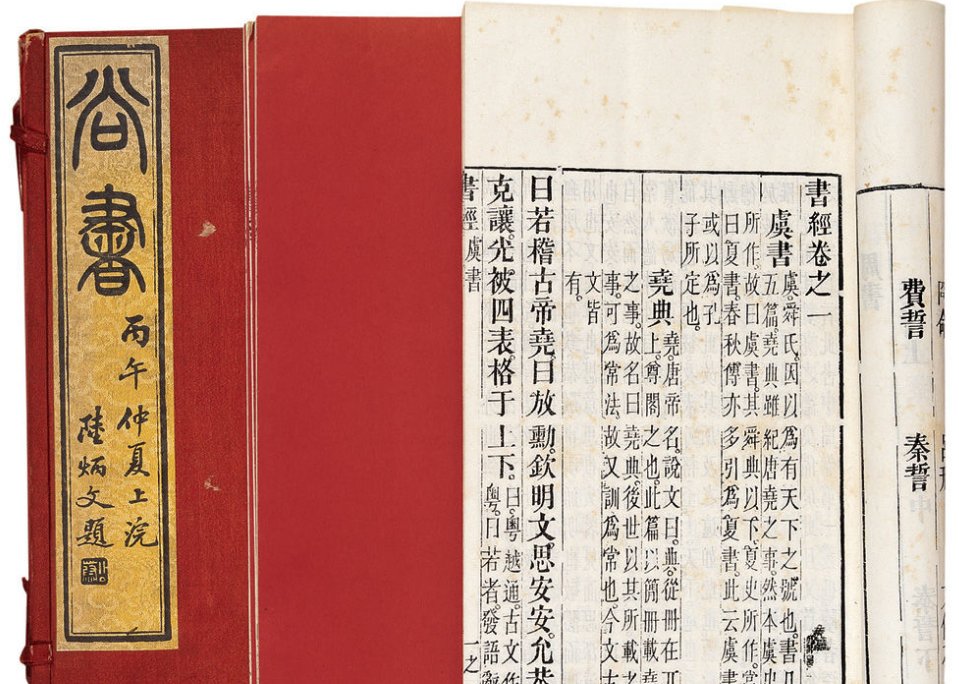 尚書
丙午仲夏上浣
陸炳文題
費誓
秦誓
書經卷之一
虞書
虞。舜氏。因以爲有天下之號也。書凡
五篇。堯典雖紀唐堯之事。然本虞史
所作。故曰虞書。其舜典以下。夏史所作。
曰夏書。春秋傳亦多引爲夏書。此云虞書
或以爲孔
子所定也。
堯典
堯。唐帝名。說文曰。典。從冊在丌
上。尊閣之也。此篇以簡冊載堯
之事。故名曰堯典。後世以其所載之
事。可爲常法。故又訓爲常也。今文古
文皆
有。
曰若稽古帝堯。曰放勳。欽明文思安安。允恭
克讓。光被四表。格于上下。
曰。粵越通。古文作
粵。曰若者。發語辭
書經 虞書 一之